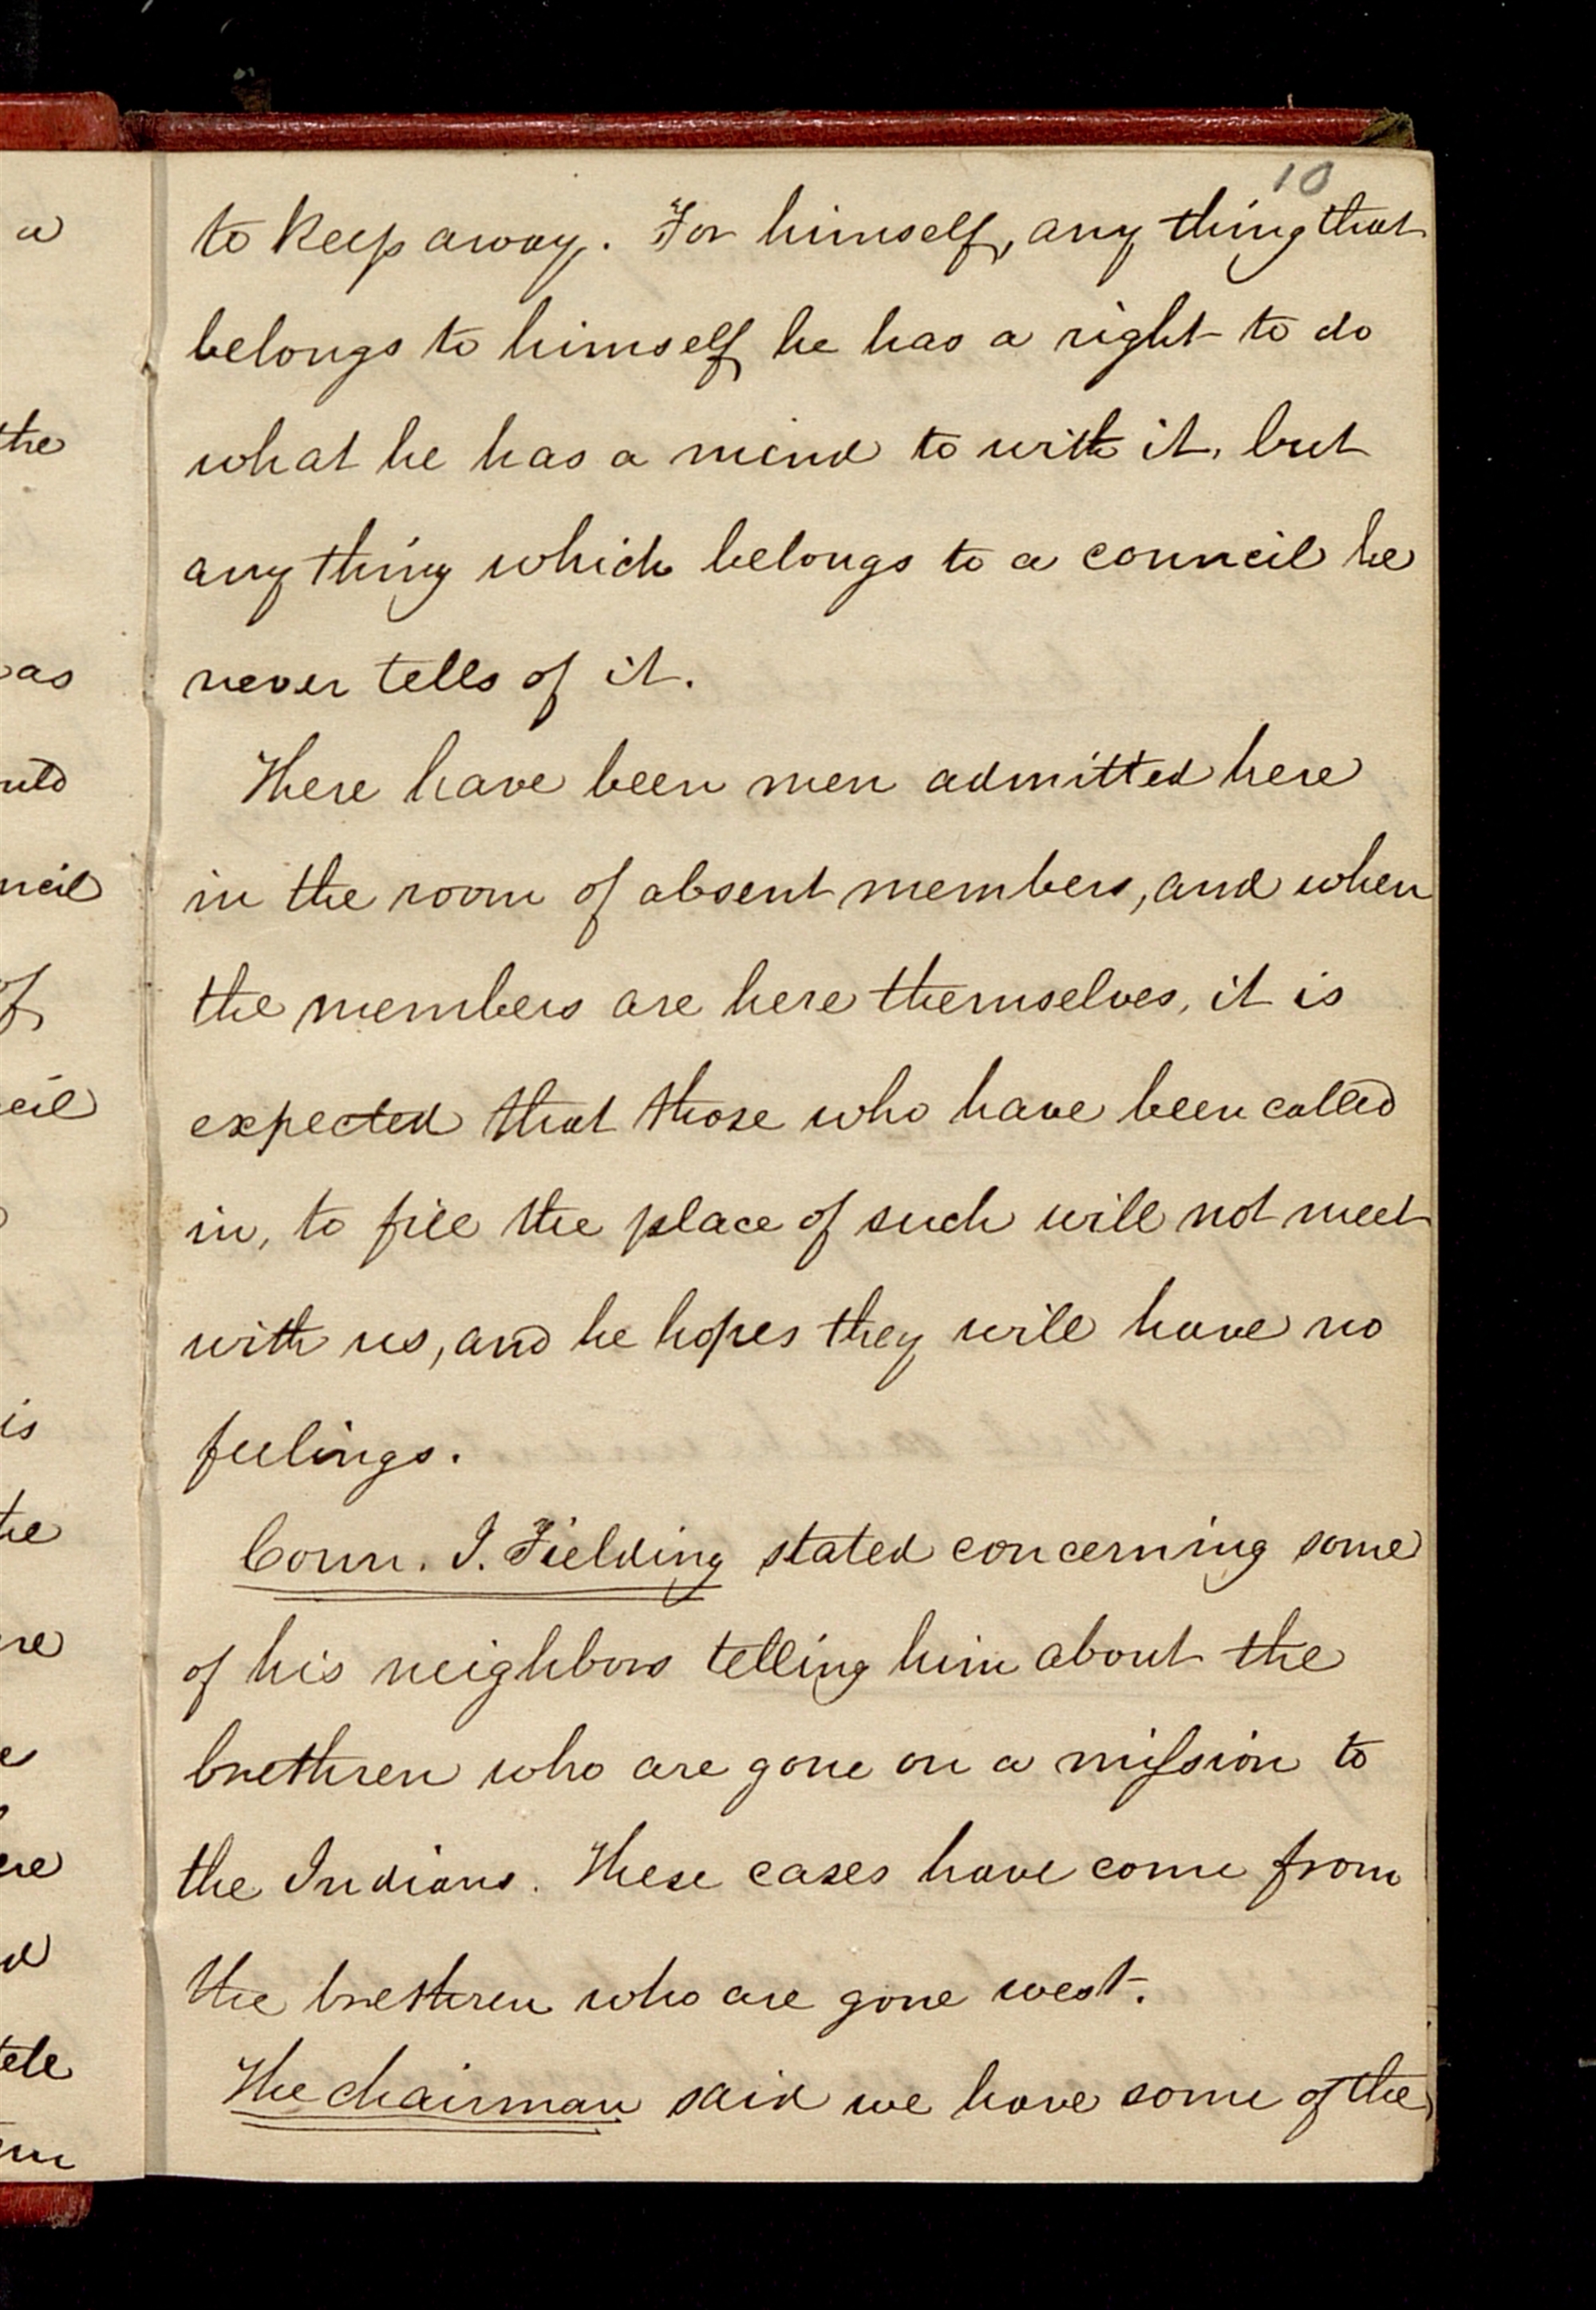 10
to keep away. For himself, any thing that
belongs to himself he has a right to do
what he has a mind to with it, but
any thing which belongs to a council he
never tells of it.
There have been men admitted here
in the room of absent members, and when
the members are here themselves, it is
expected that those who have been called
in, to fill the place of such will not meet
with us, and he hopes they will have no
feelings.
Coun. J. Fielding stated concerning some
of his neighbors telling him about the
brethren who are gone on a mission to
the Indians. These cases have come from
the brethren who are gone west.
The chairman said we have some of the